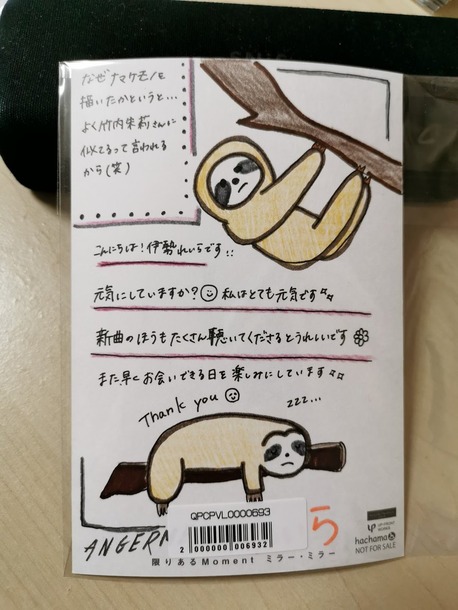 なぜナマケモノを
描いたかというと…
よく竹内朱莉さんに
似てるって言われる
から(笑)
こんにちは!伊勢れいらです!!
元気にしていますか?私はとても元気です
新曲のほうもたくさん聴いてくださるとうれしいです
また早くお会いできる日を楽しみにしています
Thank you
zzz...
QPCPVL0000693
2 000000 006932
5
ANGERM
限りあるMoment ミラー・ミラー
UP-FRONT WORKS
hachama
NOT FOR SALE